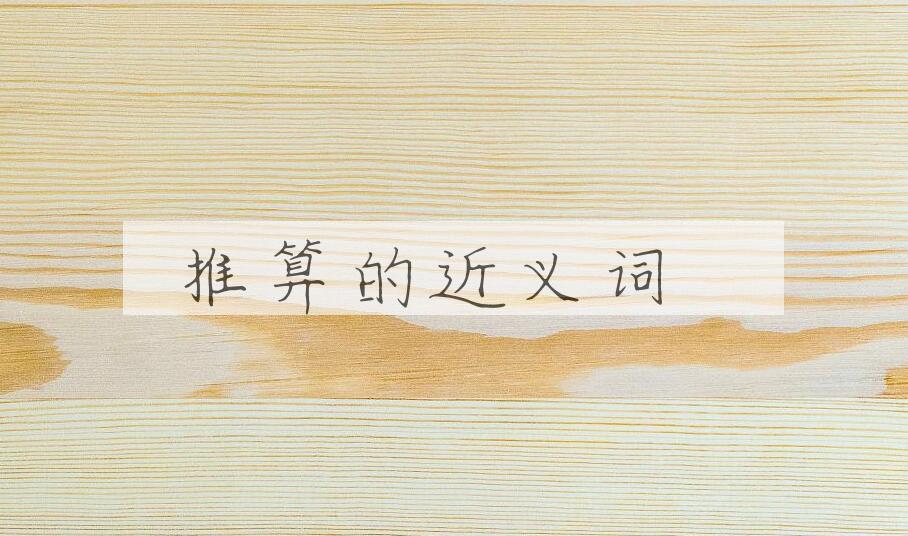 推算的近义词